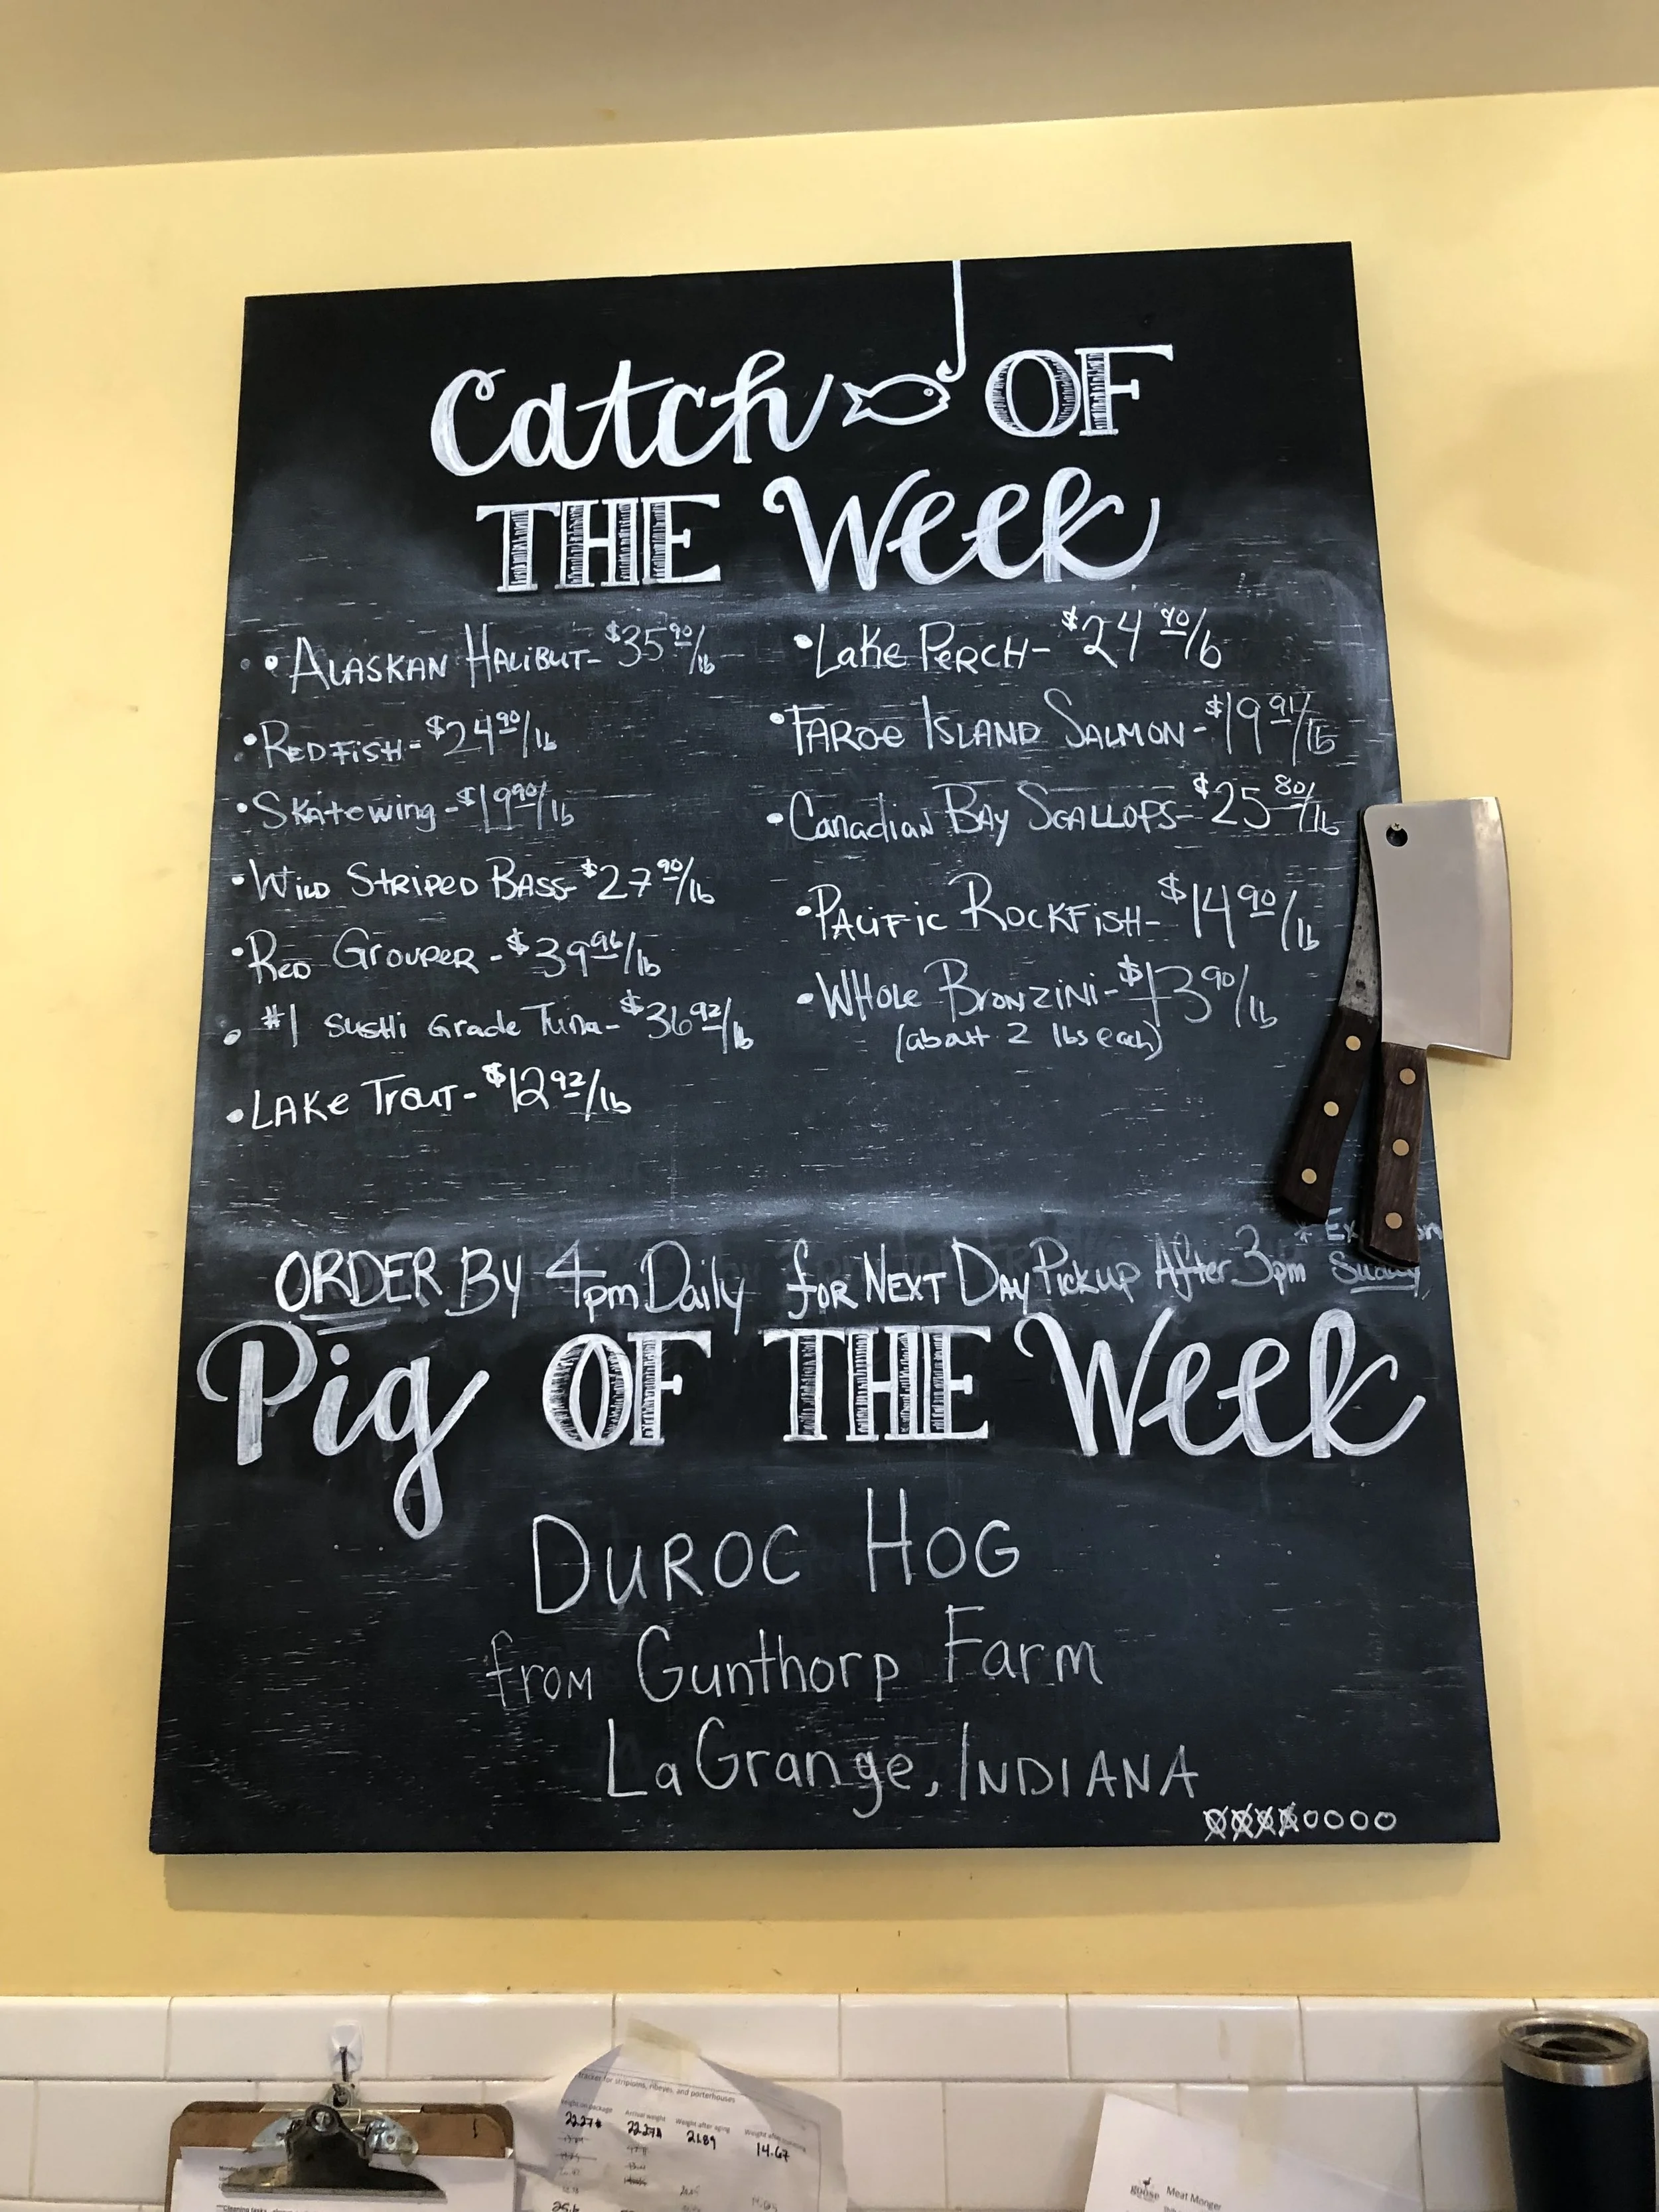 Catch OF
THE Week
• ALASKAN HALIBUT- $35 90/lb
• REDFISH - $24 90/lb
• Skatewing - $19 90/lb
• WILD STRIPED BASS- $27 90/lb
• RED GROUPER - $39 96/lb
• #1 Sushi Grade Tuna - $36 92/lb
• LAKE TROUT - $12 92/lb
• Lake PERCH - $24 90/lb
• FAROE ISLAND SALMON - $19 91/lb
• Canadian BAY SCALLOPS- $25 80/lb
• PACIFIC ROCKFISH- $14 90/lb
• WHOLE BRONZINI - $13 90/lb
(about 2 lbs each)
ORDER BY 4pm Daily for NEXT DAY Pickup After 3pm
Pig OF THE Week
DUROC HOG
from Gunthorp Farm
LaGrange, INDIANA
tracker for striploins, ribeyes, and porterhouses
Arrival weight Weight after aging
22.27# 22.27# 21.89 14.67
goose
Meat Monger